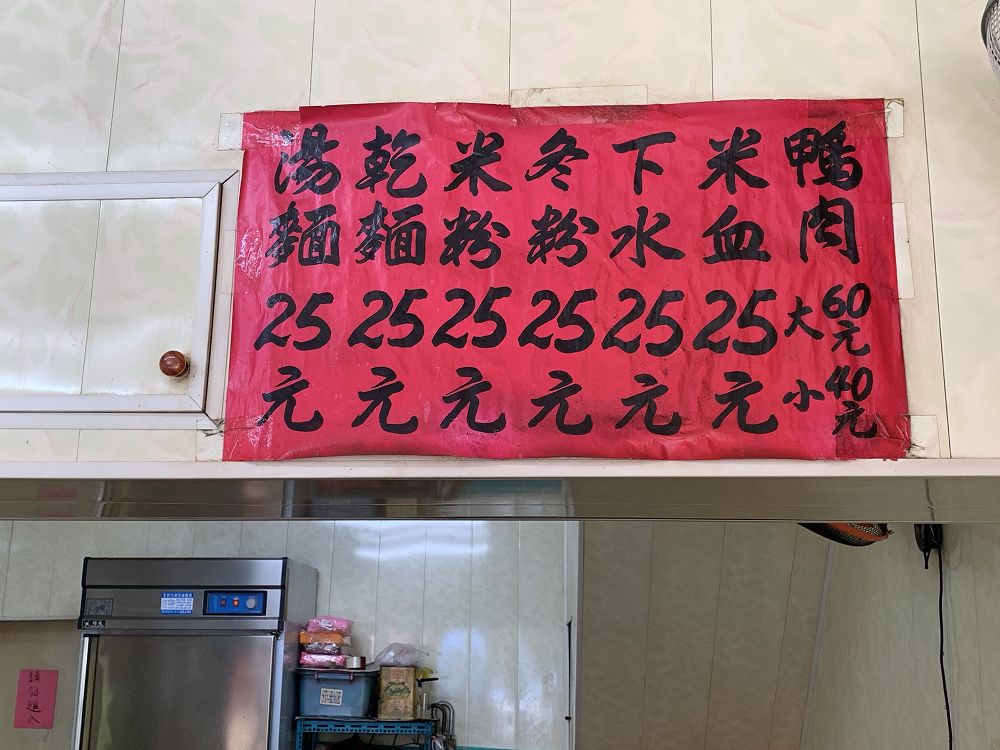 鴨肉 大60元 小40元
米血 25元
下水 25元
冬粉 25元
米粉 25元
乾麵 25元
湯麵 25元
請勿進入